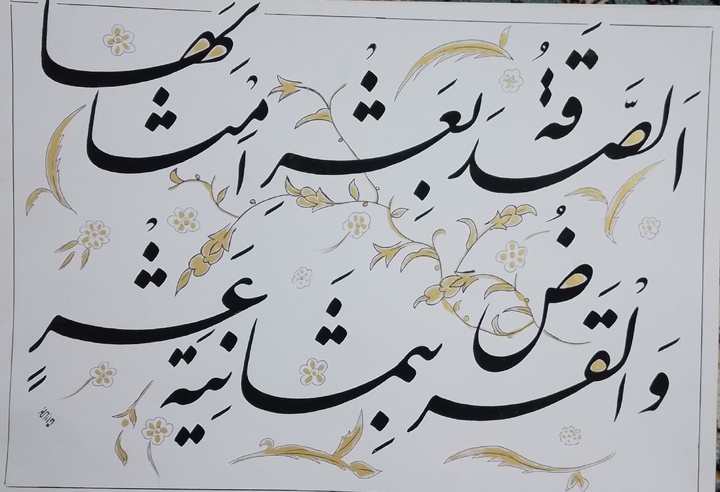 اَلصَّدَقَةُ بِعَشْرِ اَمْثالِها
وَالْقَرْضُ بِثَمانِیَةَ عَشَرٍ